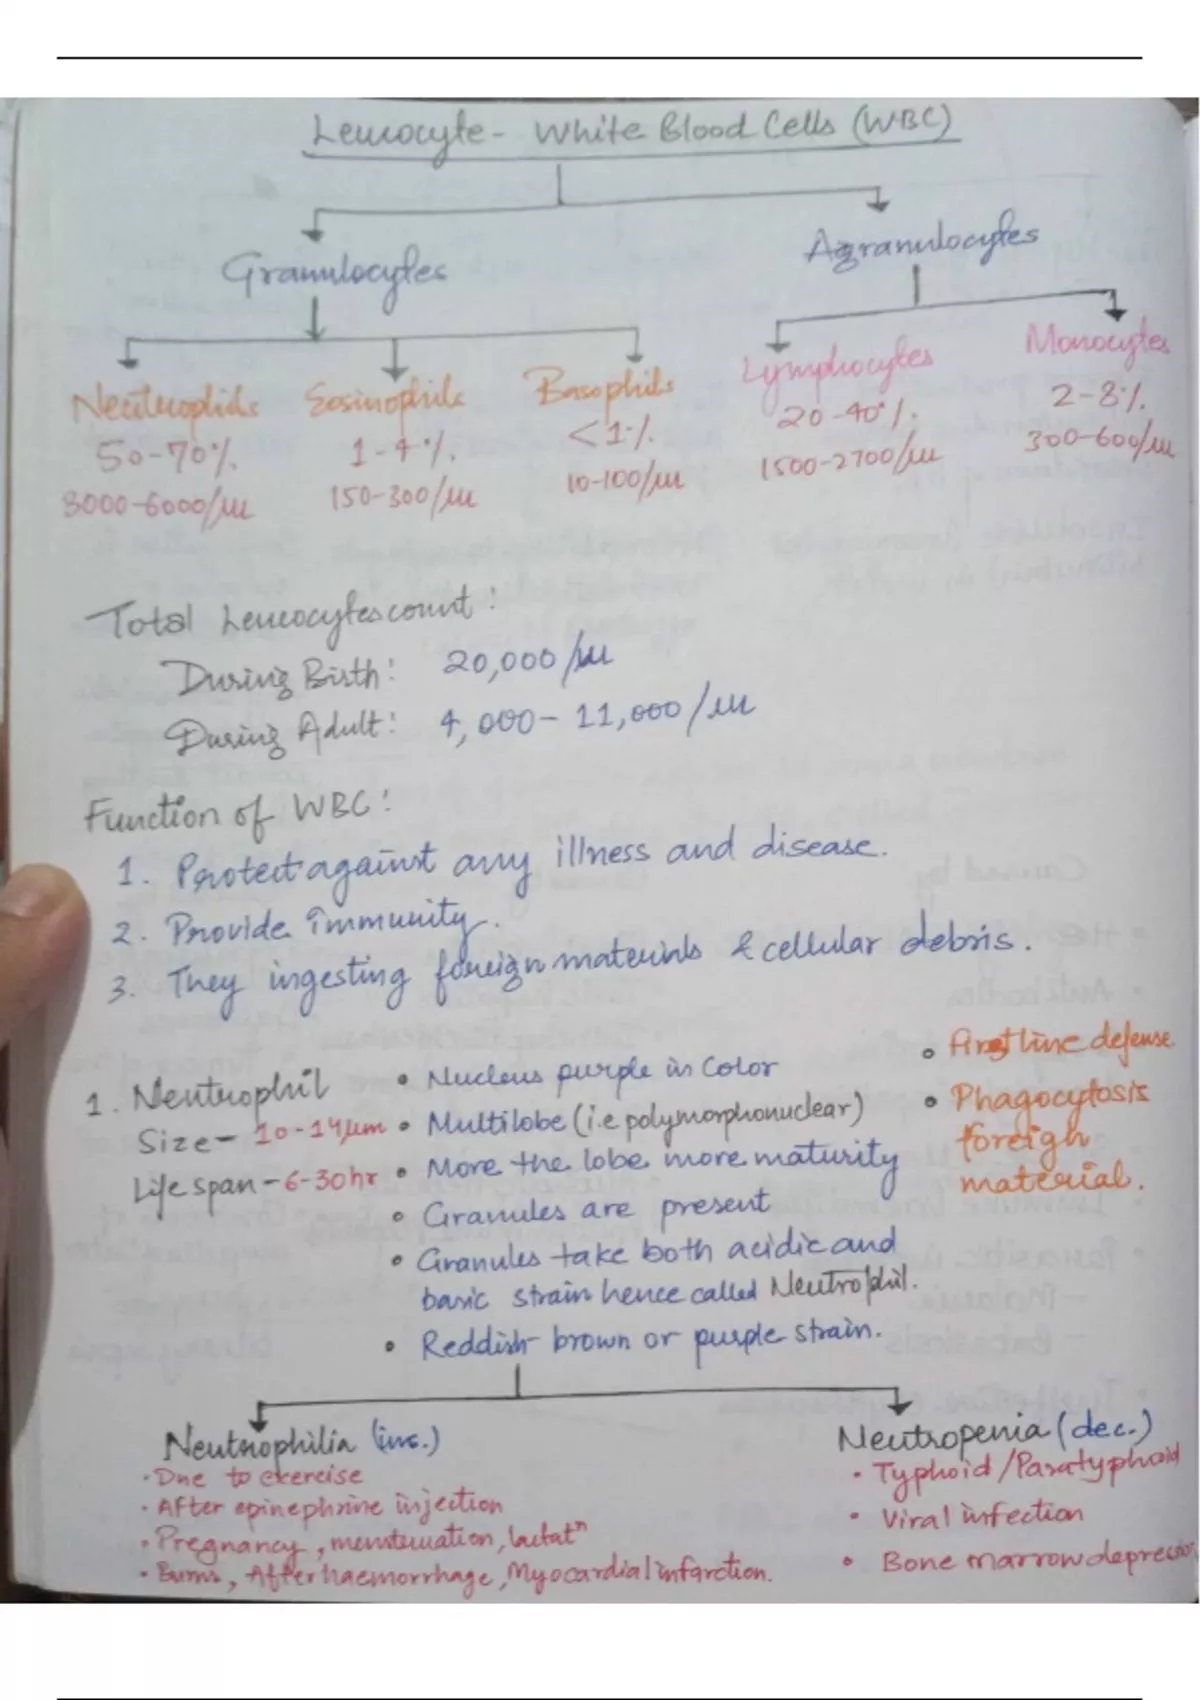 Leucocyte - White Blood Cells (WBC)
Granulocytes
Agranulocytes
Neutrophils
50-70%
3000-6000/µL
Eosinophils
1-4%.
150-300/µL
Basophils
<1%
10-100/µL
Lymphocytes
20-40%.
1500-2700/µL
Monocytes
2-8%.
300-600/µL
Total Leucocytes count :
During Birth : 20,000/µL
During Adult : 4,000 - 11,000/µL
Function of WBC :
1. Protect against any illness and disease.
2. Provide immunity.
3. They ingesting foreign materials & cellular debris.
1. Neutrophil
Size - 10-14µm
Life span - 6-30hr
• Nucleus purple in Color
• Multilobe (i.e polymorphonuclear)
• More the lobe more maturity
• Granules are present
• Granules take both acidic and
basic strain hence called Neutrophil.
• Reddish-brown or purple strain.
• First line defense
• Phagocytosis
foreign
material.
Neutrophilia (inc.)
• Due to exercise
• After epinephrine injection
• Pregnancy, menstruation, lactatⁿ
• Burns, After haemorrhage, Myocardial infarction.
Neutropenia (dec.)
• Typhoid/Paratyphoid
• Viral infection
• Bone marrow depression